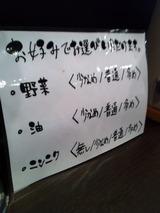 お好みでお選び出来ます。
・野菜 〈少なめ/普通/多め〉
・油 〈少なめ/普通/多め〉
・ニンニク 〈無し/少なめ/普通/多め〉